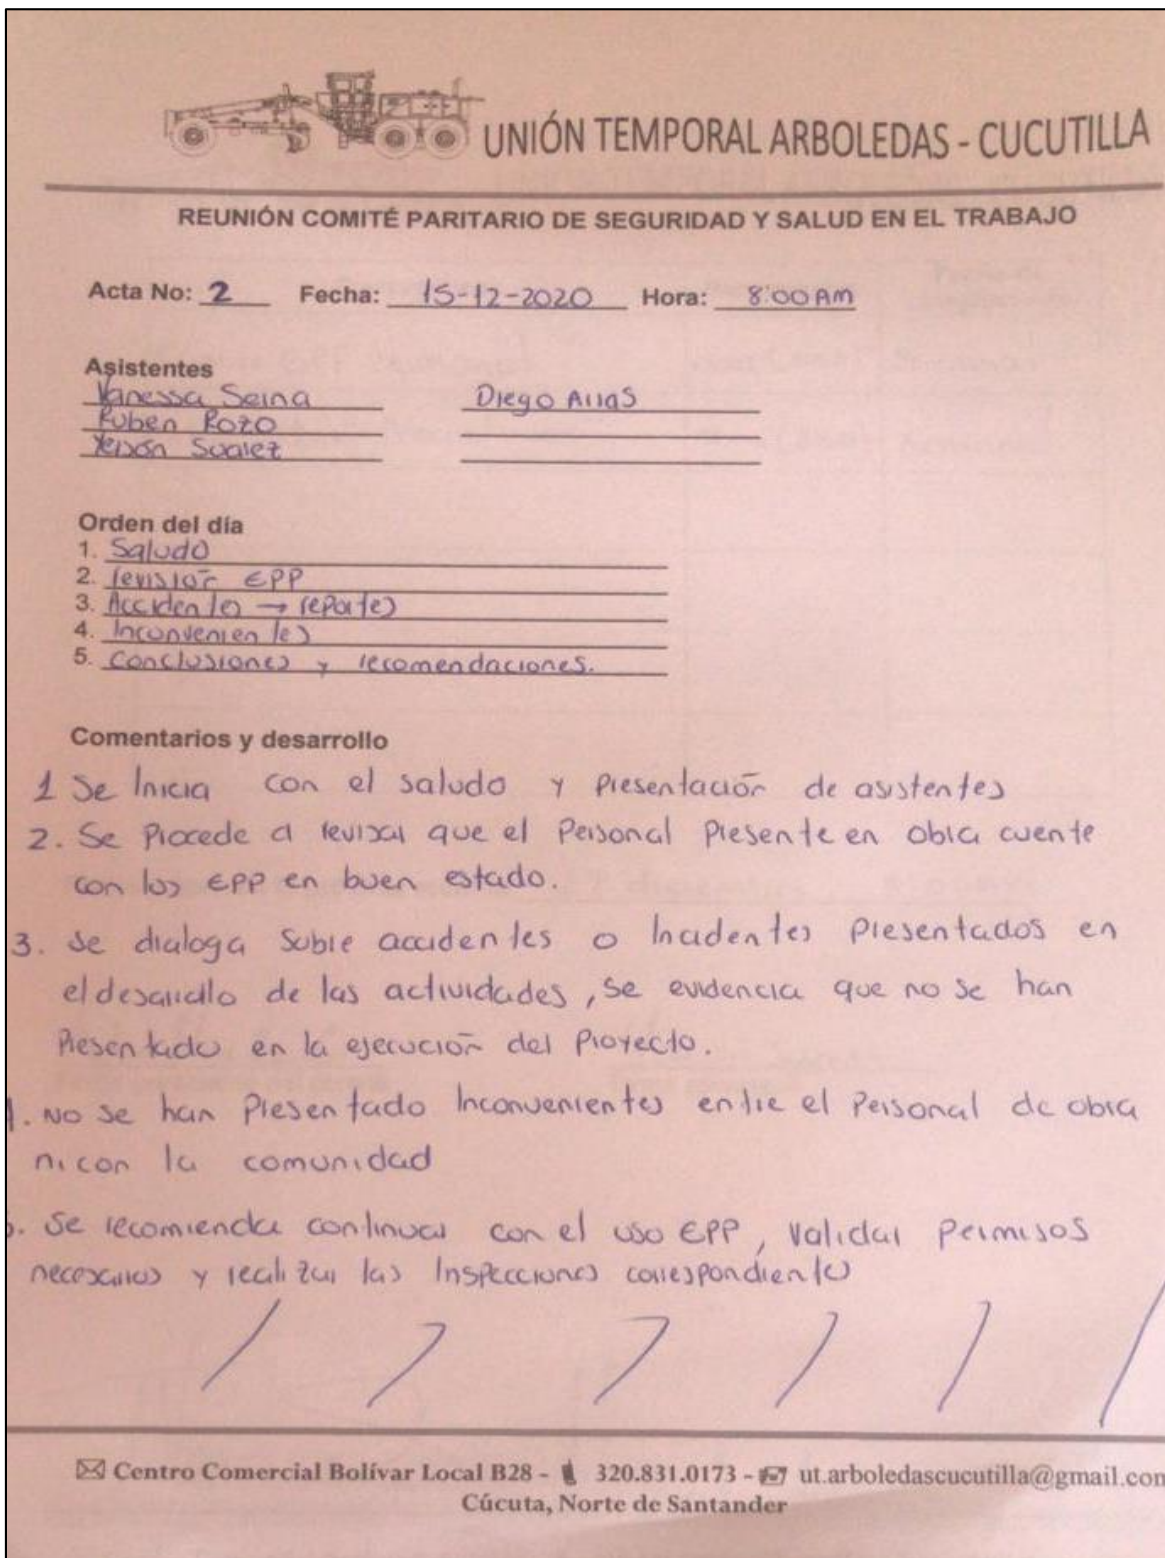 UNIÓN TEMPORAL ARBOLEDAS - CUCUTILLA
REUNIÓN COMITÉ PARITARIO DE SEGURIDAD Y SALUD EN EL TRABAJO
Acta No: 2 Fecha: 15-12-2020 Hora: 8:00 AM
Asistentes
Vanessa Serna Diego Arias
Ruben Rozo
Yeison Suarez
Orden del día
1. Saludo
2. revisión EPP
3. Accidentes → reportes
4. Inconvenientes
5. Conclusiones y recomendaciones.
Comentarios y desarrollo
1 Se Inicia con el saludo y Presentación de asistentes
2. Se Procede a revisar que el Personal Presente en obra cuente
con los EPP en buen estado.
3. Se dialoga sobre accidentes o Incidentes Presentados en
el desarrollo de las actividades, se evidencia que no se han
Presentado en la ejecución del Proyecto.
4. No se han Presentado Inconvenientes entre el Personal de obra
ni con la comunidad
5. Se recomienda continuar con el uso EPP, validar Permisos
necesarios y realizar las Inspecciones correspondientes
Centro Comercial Bolívar Local B28 - 320.831.0173 - ut.arboledascucutilla@gmail.com
Cúcuta, Norte de Santander